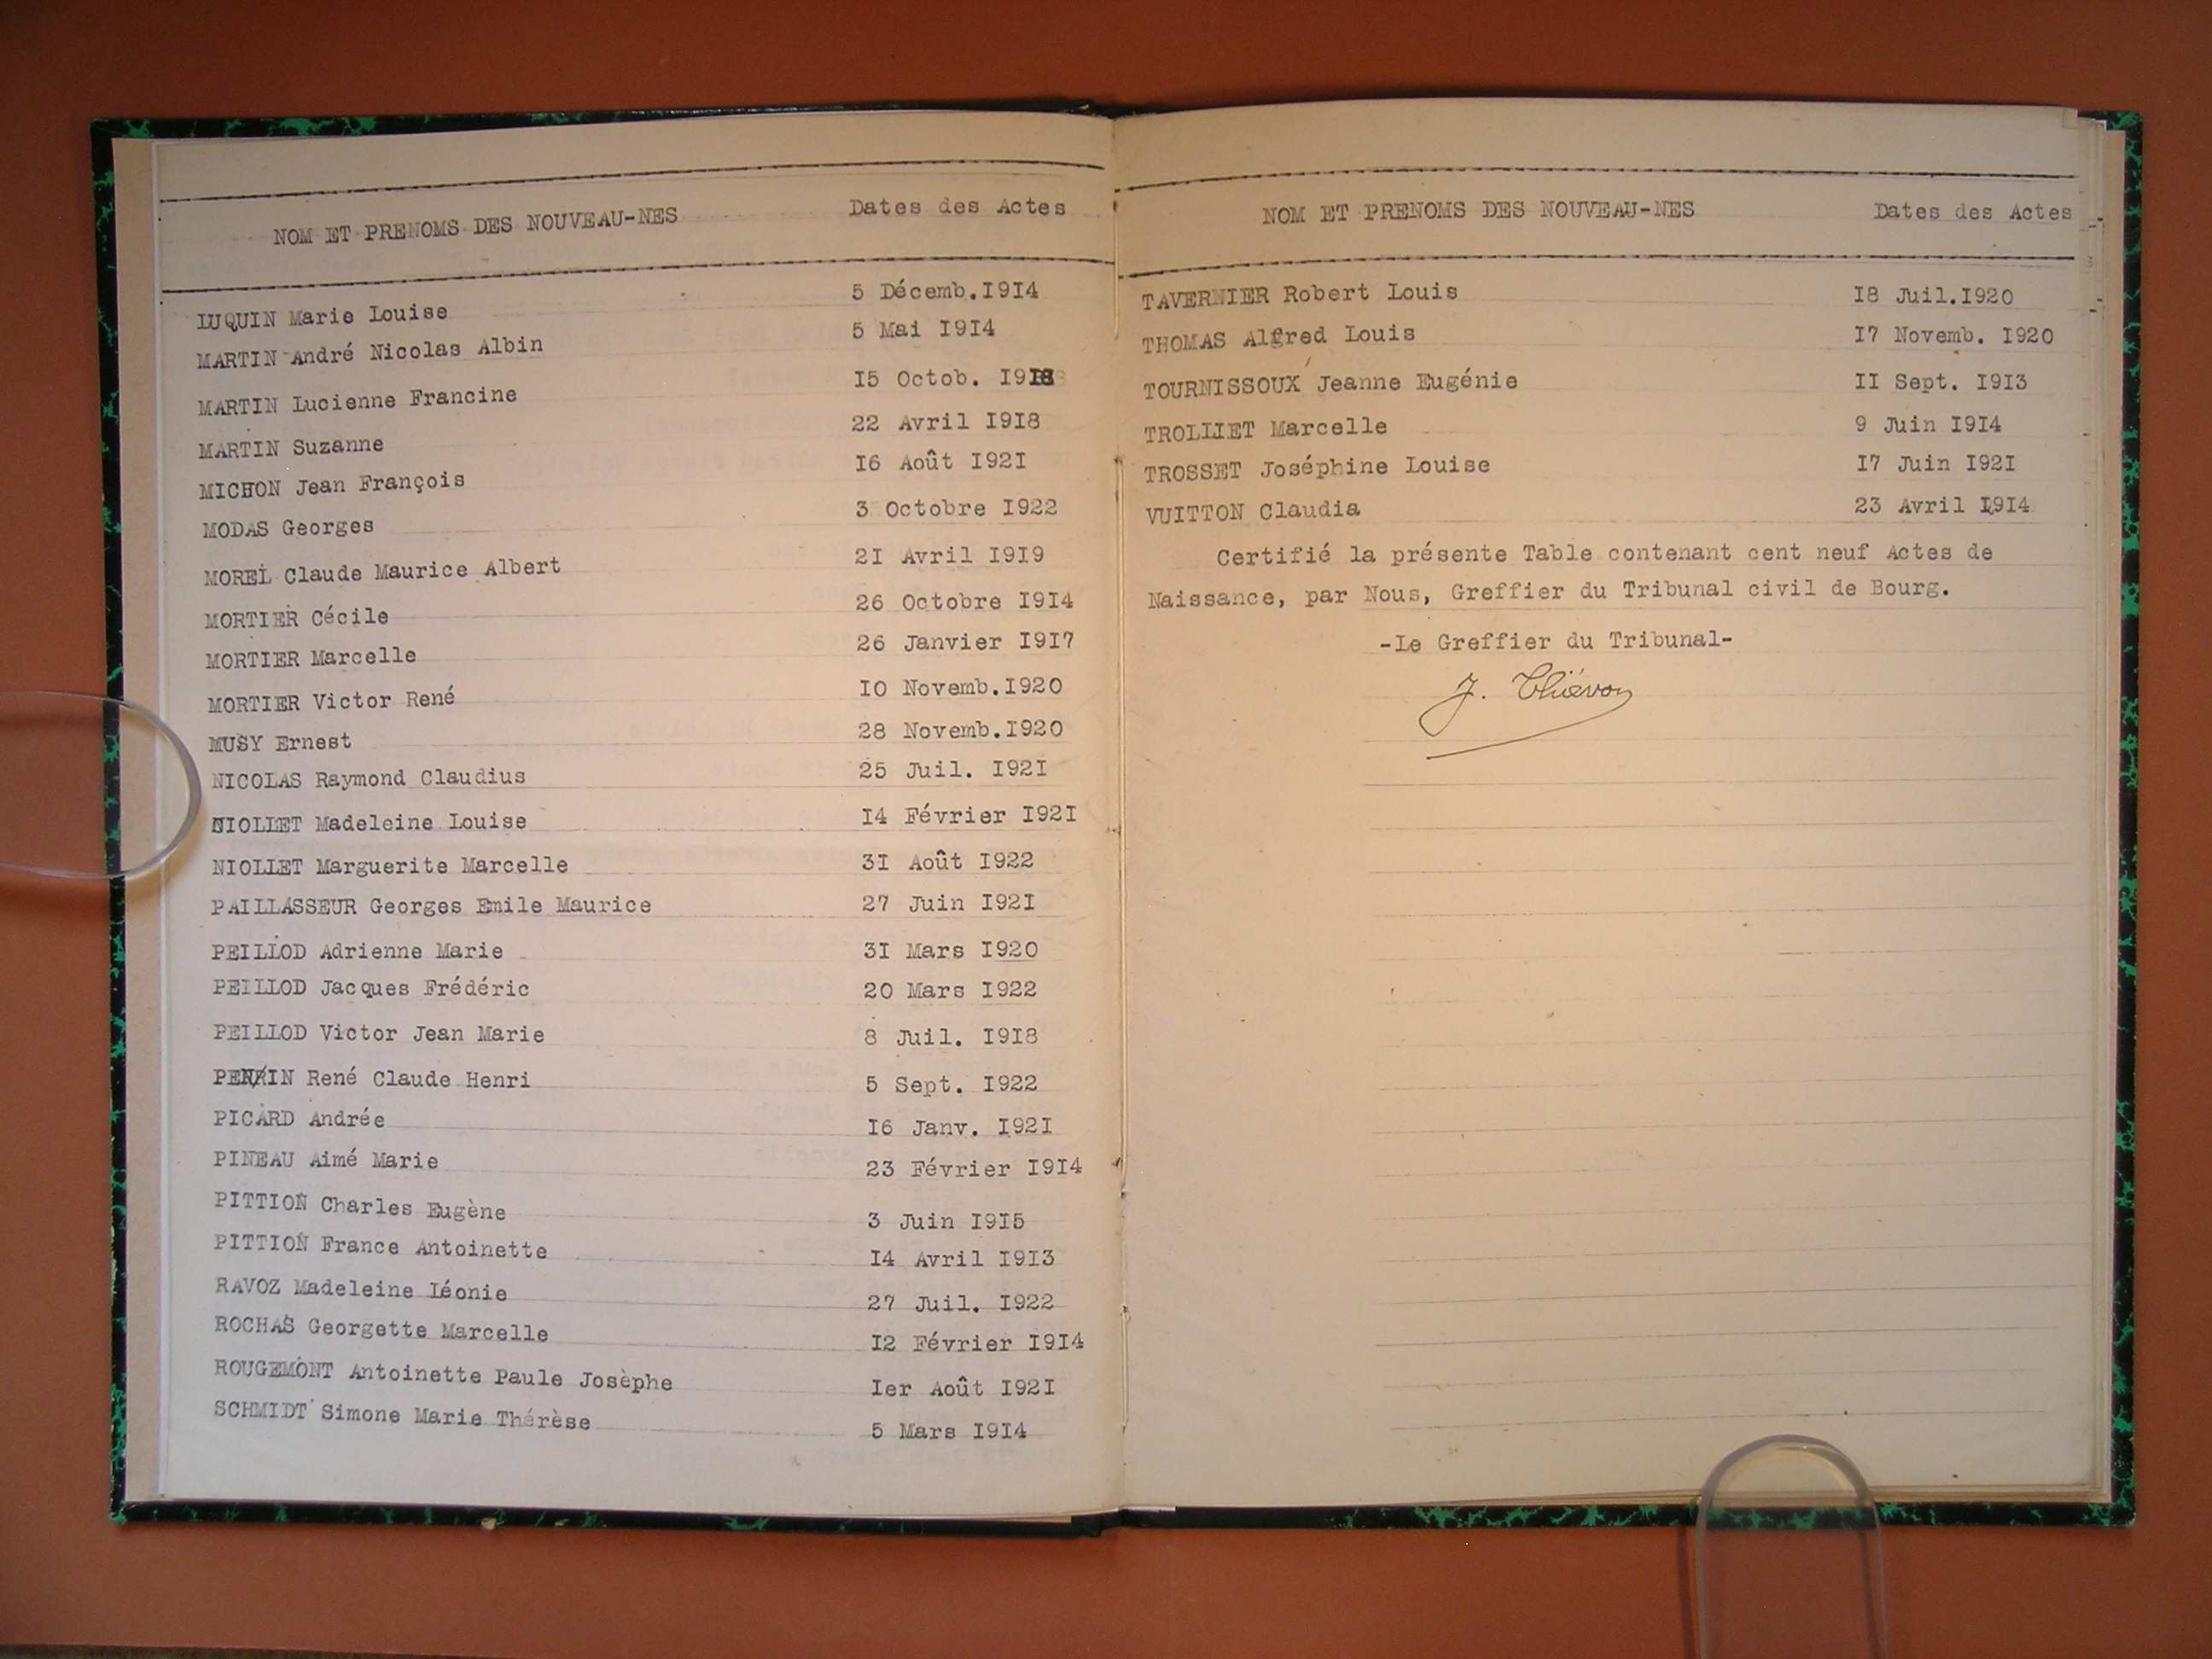 NOM ET PRENOMS DES NOUVEAU-NES Dates des Actes
LUQUIN Marie Louise 5 Décemb.1914
MARTIN André Nicolas Albin 5 Mai 1914
MARTIN Lucienne Francine 15 Octob. 1918
MARTIN Suzanne 22 Avril 1918
MICHON Jean François 16 Août 1921
MODAS Georges 3 Octobre 1922
MOREL Claude Maurice Albert 21 Avril 1919
MORTIER Cécile 26 Octobre 1914
MORTIER Marcelle 26 Janvier 1917
MORTIER Victor René 10 Novemb.1920
MUSY Ernest 28 Novemb.1920
NICOLAS Raymond Claudius 25 Juil. 1921
NIOLLET Madeleine Louise 14 Février 1921
NIOLLET Marguerite Marcelle 31 Août 1922
PAILLASSEUR Georges Emile Maurice 27 Juin 1921
PEILLOD Adrienne Marie 31 Mars 1920
PEILLOD Jacques Frédéric 20 Mars 1922
PEILLOD Victor Jean Marie 8 Juil. 1918
PERRIN René Claude Henri 5 Sept. 1922
PICARD Andrée 16 Janv. 1921
PINEAU Aimé Marie 23 Février 1914
PITTION Charles Eugène 3 Juin 1915
PITTION France Antoinette 14 Avril 1913
RAVOZ Madeleine Léonie 27 Juil. 1922
ROCHAS Georgette Marcelle 12 Février 1914
ROUGEMONT Antoinette Paule Josèphe 1er Août 1921
SCHMIDT Simone Marie Thérèse 5 Mars 1914
NOM ET PRENOMS DES NOUVEAU-NES Dates des Actes
TAVERNIER Robert Louis 18 Juil.1920
THOMAS Alfred Louis 17 Novemb. 1920
TOURNISSOUX Jeanne Eugénie 11 Sept. 1913
TROLLIET Marcelle 9 Juin 1914
TROSSET Joséphine Louise 17 Juin 1921
VUITTON Claudia 23 Avril 1914
Certifié la présente Table contenant cent neuf Actes de
Naissance, par Nous, Greffier du Tribunal civil de Bourg.
-Le Greffier du Tribunal-
J. Thiévon